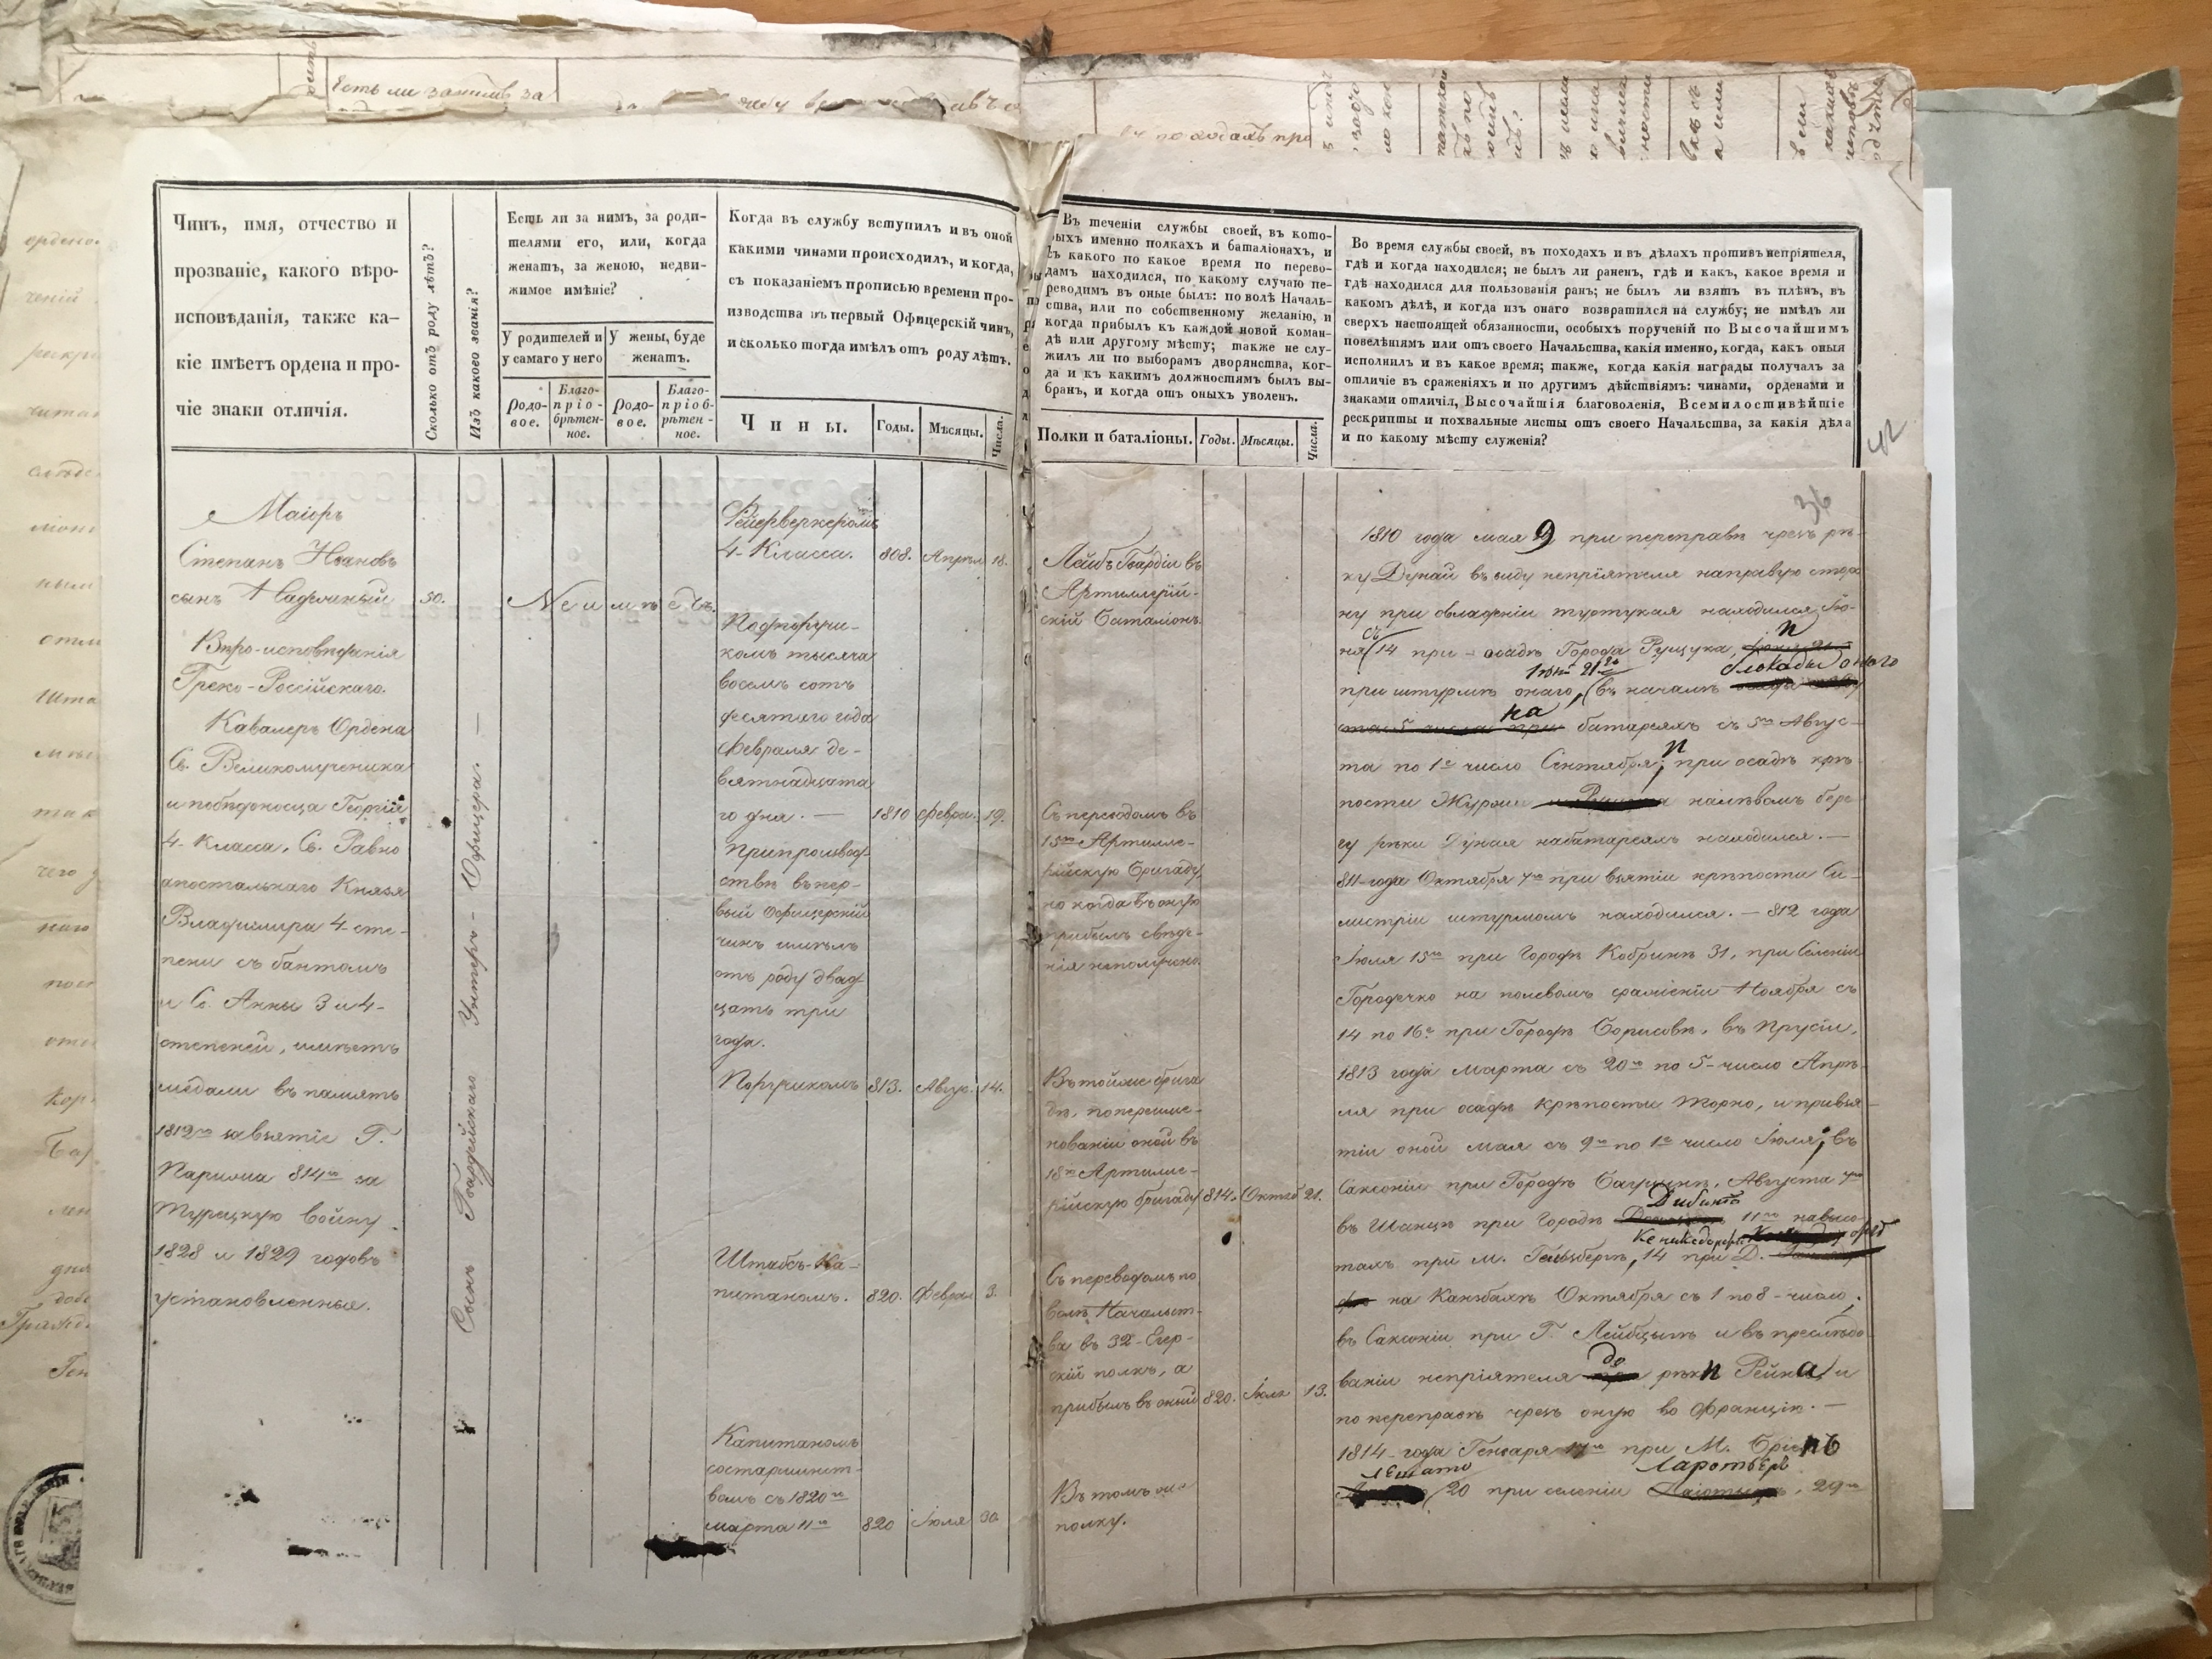 Есть ли за нимъ за
въ походахъ про
Чинъ, имя, отчество и
прозваніе, какого вѣро-
исповѣданія, также ка-
кіе имѣетъ ордена и про-
чіе знаки отличія.
Сколько отъ роду лѣтъ?
Изъ какого званія?
Есть ли за нимъ, за роди-
телями его, или, когда
женатъ, за женою, недви-
жимое имѣніе?
У родителей и
у самаго у него
У жены, буде
женатъ.
Родо-
вое.
Благо-
пріо-
брѣтен-
ное.
Родо-
вое.
Благо-
пріоб-
рѣтен-
ное.
Когда въ службу вступилъ и въ оной
какими чинами происходилъ, и когда,
съ показаніемъ прописью времени про-
изводства въ первый Офицерскій чинъ,
и сколько тогда имѣлъ отъ роду лѣтъ.
Чины.
Годы.
Мѣсяцы.
Числа.
Въ теченіи службы своей, въ кото-
рыхъ именно полкахъ и баталіонахъ, и
съ какого по какое время по перево-
дамъ находился, по какому случаю пе-
реводимъ въ оные былъ: по волѣ Началь-
ства, или по собственному желанію, и
когда прибылъ къ каждой новой коман-
дѣ или другому мѣсту; также не слу-
жилъ ли по выборамъ дворянства, ког-
да и къ какимъ должностямъ былъ вы-
бранъ, и когда отъ оныхъ уволенъ.
Полки и баталіоны.
Годы.
Мѣсяцы.
Числа.
Во время службы своей, въ походахъ и въ дѣлахъ противъ непріятеля,
гдѣ и когда находился; не былъ ли раненъ, гдѣ и какъ, какое время и
гдѣ находился для пользованія ранъ; не былъ ли взятъ въ плѣнъ, въ
какомъ дѣлѣ, и когда изъ онаго возвратился на службу; не имѣлъ ли
сверхъ настоящей обязанности, особыхъ порученій по Высочайшимъ
повелѣніямъ или отъ своего Начальства, какія именно, когда, какъ оныя
исполнилъ и въ какое время; также, когда какія награды получалъ за
отличіе въ сраженіяхъ и по другимъ дѣйствіямъ: чинами, орденами и
знаками отличія, Высочайшія благоволенія, Всемилостивѣйшіе
рескрипты и похвальные листы отъ своего Начальства, за какія дѣла
и по какому мѣсту служенія?
42
36
Маіоръ
Степанъ Ивановъ
сынъ
Вѣро-исповѣданія
Греко-Россійскаго.
Кавалеръ Ордена
Св. Великомученика
и побѣдоносца Георгія
4- Класса, Св. Равно
апостальнаго Князя
Владимира 4- сте-
пени съ бантомъ
и Св. Анны 3 и 4-
степеней, имѣетъ
медали въ память
1812го за взятіе Г.
Парижа 814го за
Турецкую войну
1828 и 1829 годовъ
установленныя.
50.
Сынъ Гвардейскаго Унтеръ-Офицера. —
Не имѣетъ.
Фейерверкеромъ
4- Класса. 808. Апрѣл 18.
Подпоручи-
комъ тысяча
восемь сотъ
десятаго года
Февраля де-
вятнадцата
го дня. — 1810 Февра. 19.
При производ-
ствѣ въ пер-
вый Офицерскій
чинъ имѣлъ
отъ роду двад-
цать три
года.
Поручикомъ 813. Авгус. 14.
Штабсъ-Ка-
питаномъ. 820. Феврал 3.
Капитаномъ
со старшинст-
вомъ съ 1820го
марта 11го 820 Іюля 30
Лейбъ Гвардіи въ
Артиллерій-
скій баталіонъ
Съ переводомъ въ
15ю Артилле-
рійскую бригаду,
но когда въ оную
прибылъ свѣде-
нія не получено
Въ той же брига
дѣ, по переиме-
нованіи оной въ
18ю Артилле-
рійскую бригаду 814. Октяб 21.
Съ переводомъ по
волѣ Начальст-
ва въ 32- Егер-
скій полкъ, а
прибылъ въ оный 820. Іюля 13.
Въ томъ же
полку.
1810 года мая 9 при переправѣ чрезъ рѣ-
ку Дунай въ виду непріятеля на правую сторо
ну при овладѣніи туртукая находился, Ію-
ня съ 14 при осадѣ Города Рущука, и
при штурмѣ онаго, Іюля 21го (въ началѣ блокады онаго
на батареяхъ съ 5го Авгус-
та по 1е число Сентября; и при осадѣ крѣ-
пости Журжи на лѣвомъ бере
гу рѣки Дуная на батареяхъ находился. —
811- года Октября 7го при взятіи крѣпости Си-
листріи штурмомъ находился. — 812 года
Іюля 15го при Городѣ Кобринѣ 31, при Селеніи
Городечко на полевомъ сраженіи Ноября съ
14 по 16е при Городѣ Борисовѣ, въ Прусіи,
1813 года Марта съ 20го по 5- число Апрѣ-
ля при осадѣ Крѣпости Торно, и при взя-
тіи оной мая съ 9го по 1е число Іюля; въ
Саксоніи при Городѣ Бауценѣ, Августа 7го
въ Шанцѣ при Городѣ 11го на высо
тахъ при М. 14 при Д.
на Канзбахѣ Октября съ 1 по 8- число;
въ Саксоніи при Г. Лейбцыгѣ и въ преслѣдо
ваніи непріятеля до рѣки Рейна, и
по переправѣ чрезъ оную во Францію. —
1814- года Генваря 17го при М. Бріенъ
Лешато 20 при селеніи Ларотьеръ, 29го